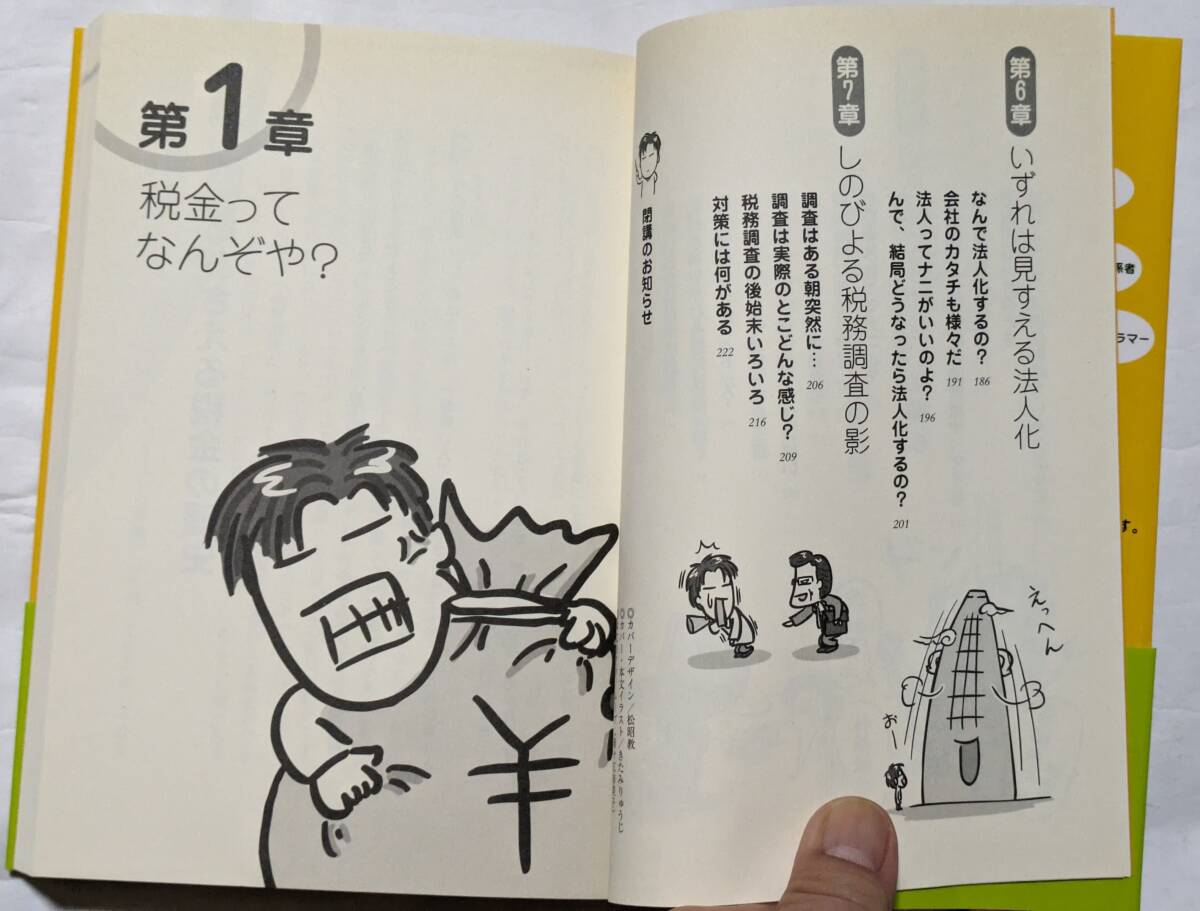 第6章
いずれは見すえる法人化
なんで法人化するの? 186
会社のカタチも様々だ 191
法人ってナニがいいのよ? 196
んで、結局どうなったら法人化するの? 201
第7章
しのびよる税務調査の影
調査はある朝突然に… 206
調査は実際のとこどんな感じ? 209
税務調査の後始末いろいろ 216
対策には何がある 222
閉講のお知らせ
えっへん
おー
◎カバーデザイン/松昭教
◎カバー・本文イラスト/きたみりゅうじ
第1章
税金って
なんぞや?
¥
係者
ラマー
す。